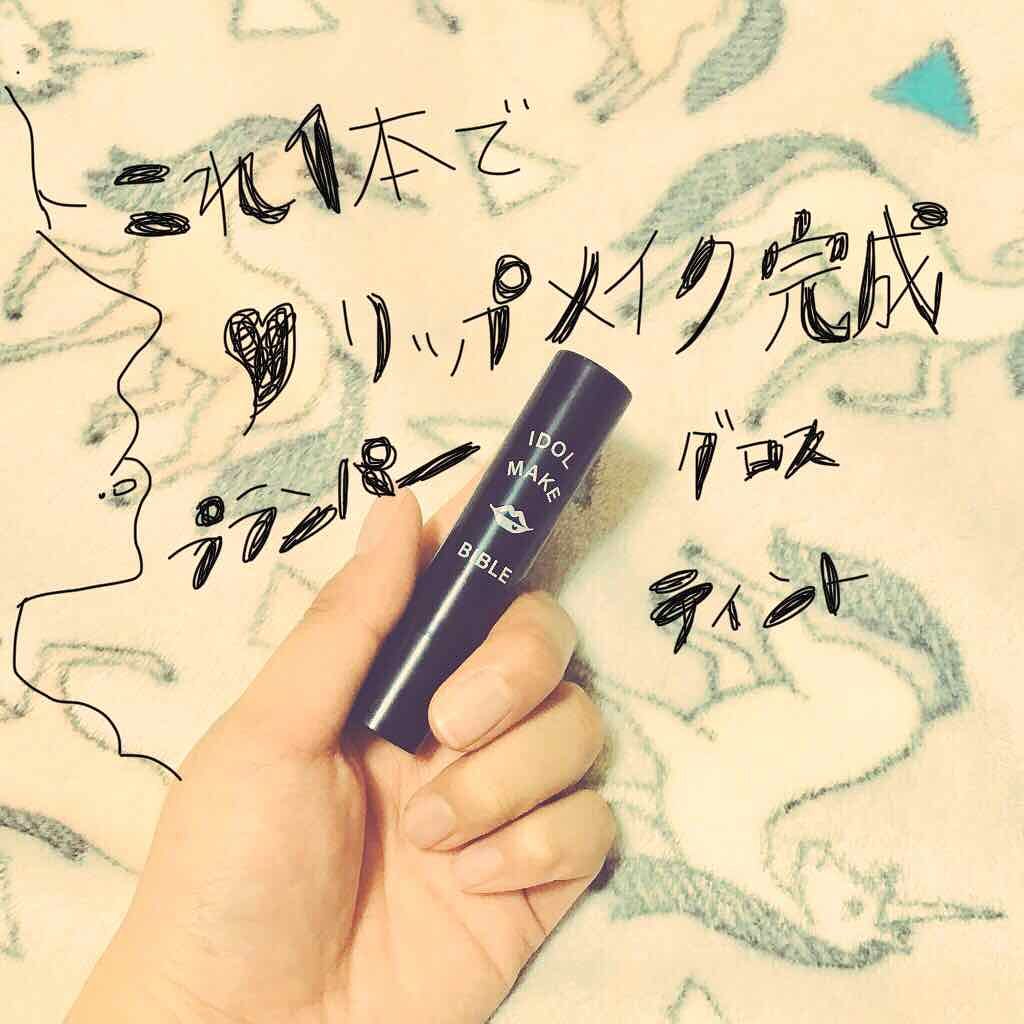 これ1本で
リップメイク完成
プランパー
グロス
ティント
IDOL
MAKE
BIBLE